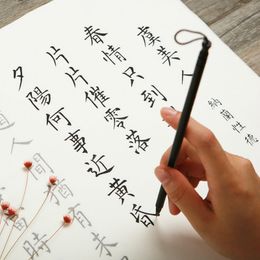 虞美人
納蘭性德
春情只到
片片催零落
夕陽何事近黃昏
道人間猶有未
時